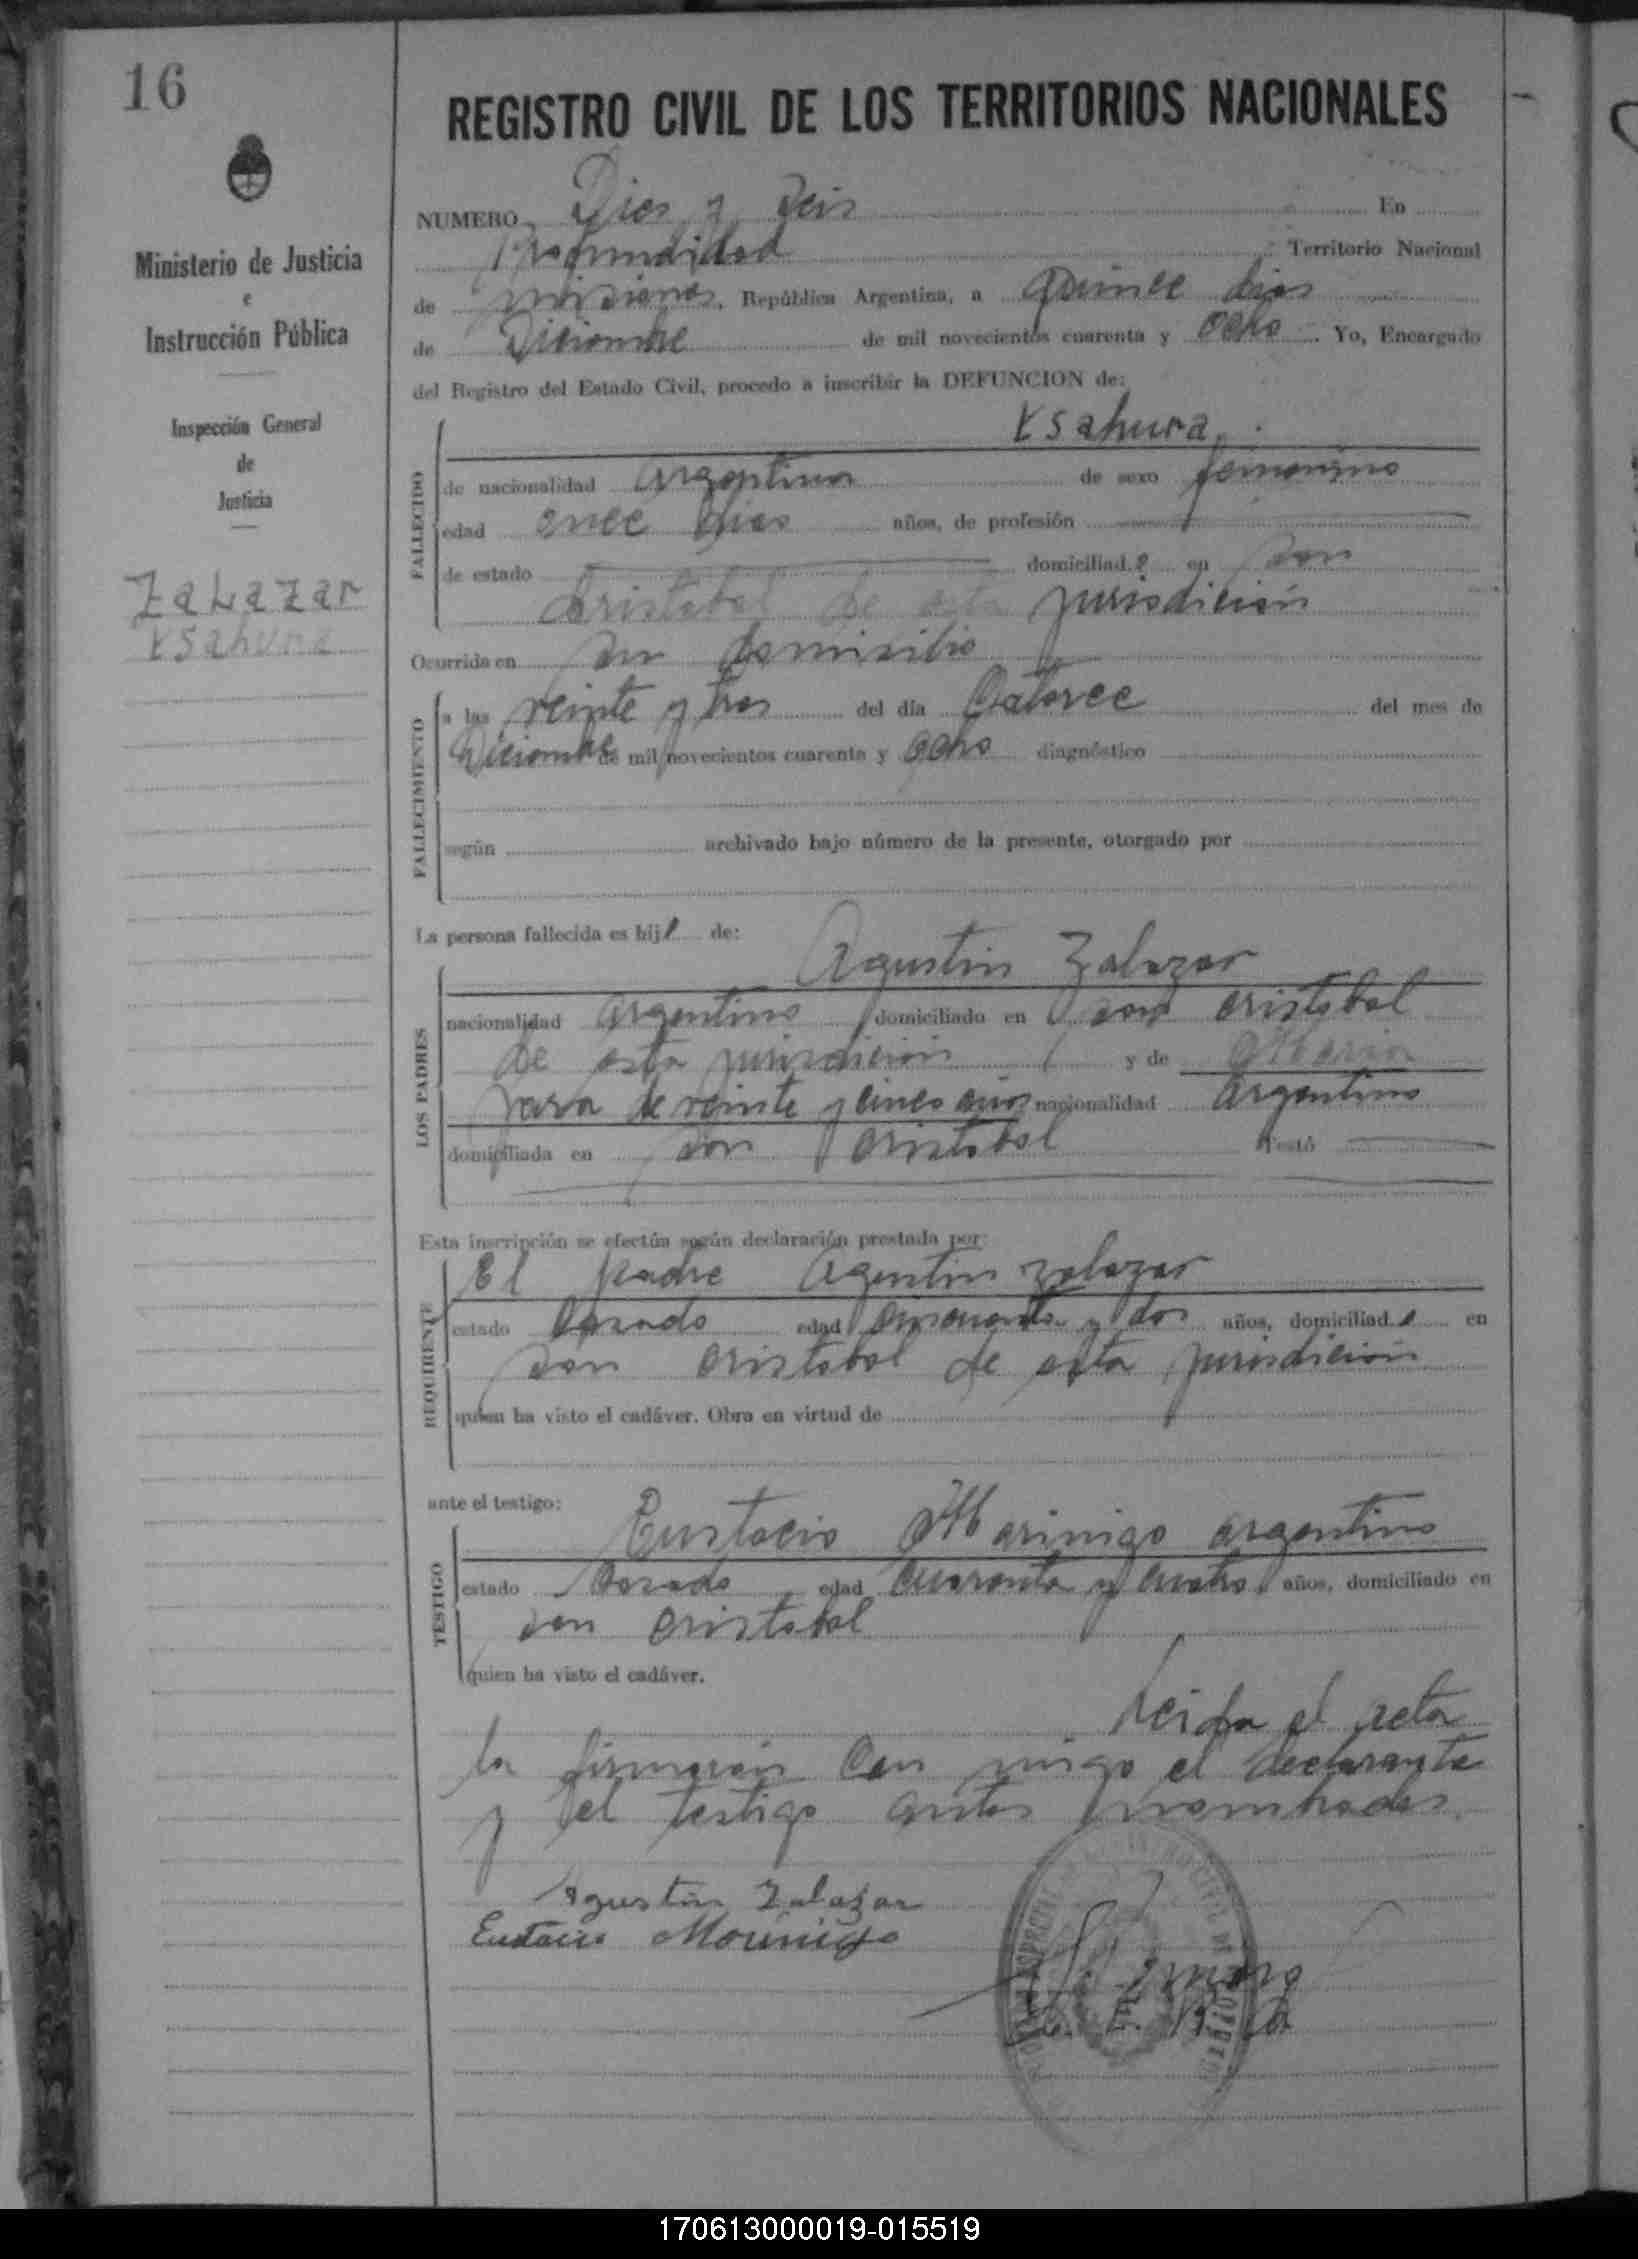 16
REGISTRO CIVIL DE LOS TERRITORIOS NACIONALES
Ministerio de Justicia
e
Instrucción Pública
Inspección General
de
Justicia
ZaLazar
Ysahura
NUMERO Dies y Seis En
Profundidad Territorio Nacional
de misiones, República Argentina, a Quince dias
de Diciembre de mil novecientos cuarenta y ocho. Yo, Encargado
del Registro del Estado Civil, procedo a inscribir la DEFUNCION de:
Ysahura
FALLECIDO
de nacionalidad argentina de sexo femenino
edad once dias años, de profesión
de estado domiciliad o en san
cristobal de esta jurisdicion
Ocurrida en su domicilio
FALLECIMIENTO
a las veinte y tres del día Catorce del mes de
Diciembre de mil novecientos cuarenta y ocho diagnóstico
según archivado bajo número de la presente, otorgado por
La persona fallecida es hij de:
LOS PADRES
Agustin Zalazar
nacionalidad argentino domiciliado en san cristobal
de esta jurisdicion y de Maria
vara de veinte y cinco años nacionalidad argentina
domiciliada en san cristobal Testó
Esta inscripción se efectúa según declaración prestada por:
REQUIRENTE
El padre Agustin Zalazar
estado Casado edad cincuenta y dos años, domiciliad o en
san cristobal de esta jurisdicion
quien ha visto el cadáver. Obra en virtud de
ante el testigo:
TESTIGO
Eustacio Marinigo argentino
estado Casado edad cuarenta y cuatro años, domiciliado en
san cristobal
quien ha visto el cadáver.
Leida el acta
la firmaron con migo el declarante
y el testigo antes nombrados.
Agustin Zalazar
Eustacio Morinigo
170613000019-015519